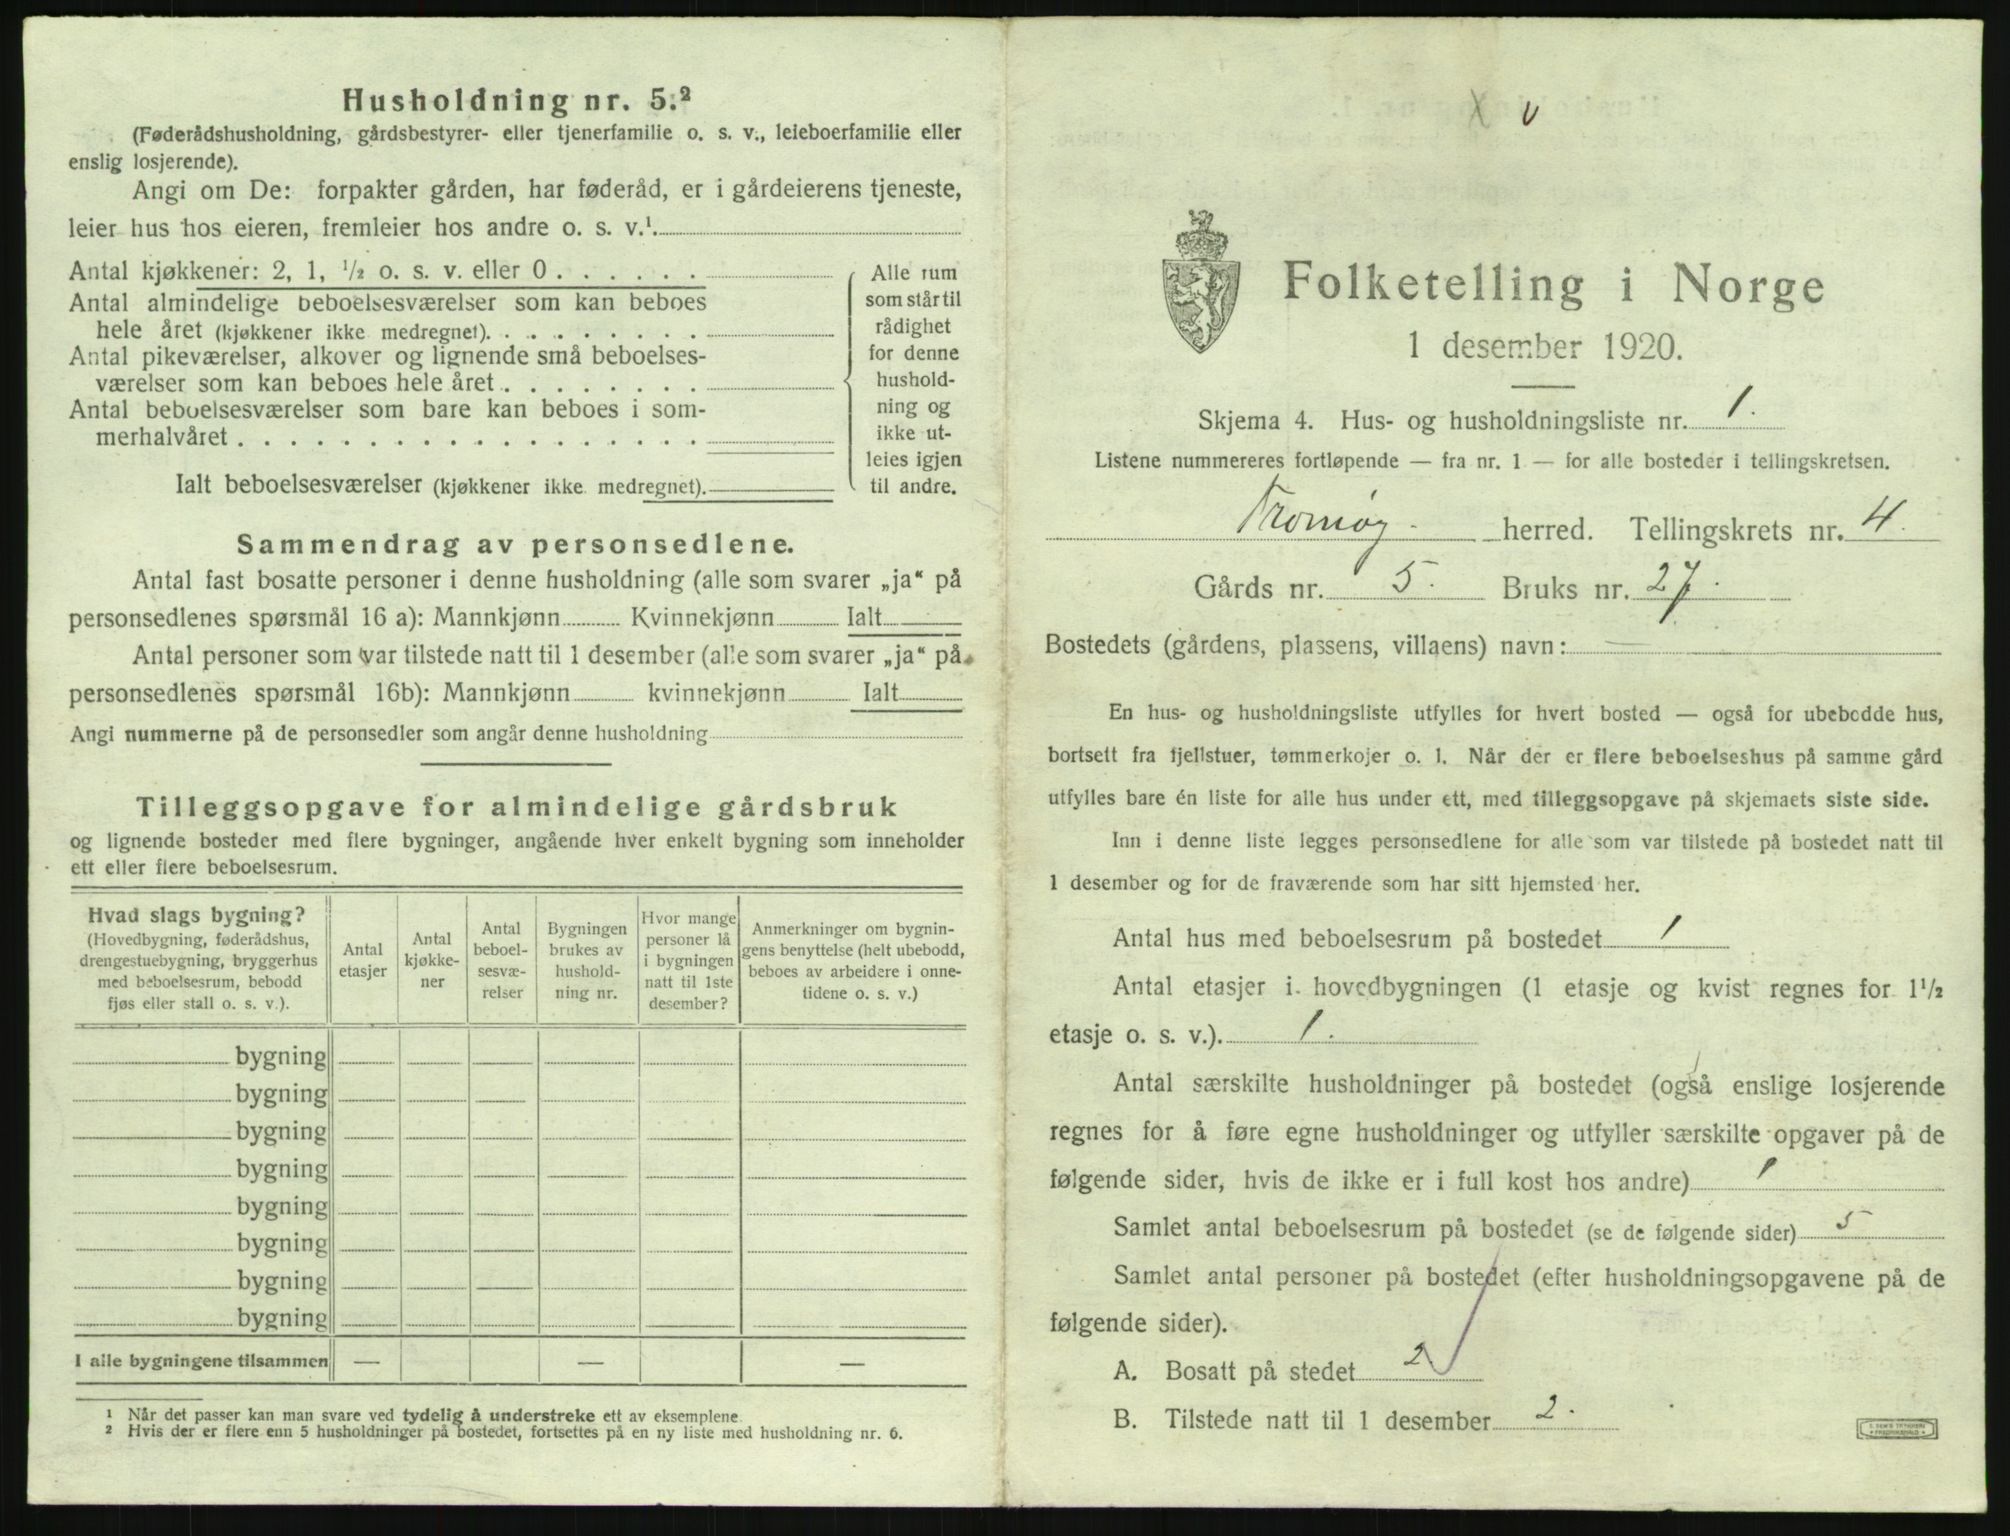 Husholdning nr. 5.²
(Føderådshusholdning, gårdsbestyrer- eller tjenerfamilie o. s. v., leieboerfamilie eller
enslig losjerende).
Angi om De: forpakter gården, har føderåd, er i gårdeierens tjeneste,
leier hus hos eieren, fremleier hos andre o. s. v.¹.
Antal kjøkkener: 2, 1, ½ o. s. v. eller 0 . . . . . .
Antal almindelige beboelsesværelser som kan beboes
hele året (kjøkkener ikke medregnet). . . . . . . . .
Antal pikeværelser, alkover og lignende små beboelses-
værelser som kan beboes hele året . . . . . . . .
Antal beboelsesværelser som bare kan beboes i som-
merhalvåret . . . . . . . . . . . . . . . . . .
Ialt beboelsesværelser (kjøkkener ikke medregnet).
Alle rum
som står til
rådighet
for denne
hushold-
ning og
ikke ut-
leies igjen
til andre.
Sammendrag av personsedlene.
Antal fast bosatte personer i denne husholdning (alle som svarer „ja“ på
personsedlenes spørsmål 16 a): Mannkjønn Kvinnekjønn Ialt
Antal personer som var tilstede natt til 1 desember (alle som svarer „ja“ på
personsedlenes spørsmål 16b): Mannkjønn kvinnekjønn Ialt
Angi nummerne på de personsedler som angår denne husholdning
Tilleggsopgave for almindelige gårdsbruk
og lignende bosteder med flere bygninger, angående hver enkelt bygning som inneholder
ett eller flere beboelsesrum.
Hvad slags bygning?
(Hovedbygning, føderådshus,
drengestuebygning, bryggerhus
med beboelsesrum, bebodd
fjøs eller stall o. s. v.).
Antal
etasjer
Antal
kjøkke-
ner
Antal
beboel-
sesvæ-
relser
Bygningen
brukes av
hushold-
ning nr.
Hvor mange
personer lå
i bygningen
natt til 1ste
desember?
Anmerkninger om bygnin-
gens benyttelse (helt ubebodd,
beboes av arbeidere i onne-
tidene o. s. v.)
bygning
bygning
bygning
bygning
bygning
bygning
bygning
bygning
I alle bygningene tilsammen — — —
¹ Når det passer kan man svare ved tydelig å understreke ett av eksemplene.
² Hvis der er flere enn 5 husholdninger på bostedet, fortsettes på en ny liste med husholdning nr. 6.
X v
Folketelling i Norge
1 desember 1920.
Skjema 4. Hus- og husholdningsliste nr. 1.
Listene nummereres fortløpende — fra nr. 1 — for alle bosteder i tellingskretsen.
Tromøy. herred. Tellingskrets nr. 4.
Gårds nr. 5. Bruks nr. 27.
Bostedets (gårdens, plassens, villaens) navn: —
En hus- og husholdningsliste utfylles for hvert bosted — også for ubebodde hus,
bortsett fra fjellstuer, tømmerkojer o. l. Når der er flere beboelseshus på samme gård
utfylles bare én liste for alle hus under ett, med tilleggsopgave på skjemaets siste side.
Inn i denne liste legges personsedlene for alle som var tilstede på bostedet natt til
1 desember og for de fraværende som har sitt hjemsted her.
Antal hus med beboelsesrum på bostedet 1
Antal etasjer i hovedbygningen (1 etasje og kvist regnes for 1½
etasje o. s. v.). 1.
Antal særskilte husholdninger på bostedet (også enslige losjerende
regnes for å føre egne husholdninger og utfyller særskilte opgaver på de
følgende sider, hvis de ikke er i full kost hos andre) 1
Samlet antal beboelsesrum på bostedet (se de følgende sider) 5
Samlet antal personer på bostedet (efter husholdningsopgavene på de
følgende sider).
A. Bosatt på stedet 2
B. Tilstede natt til 1 desember 2.